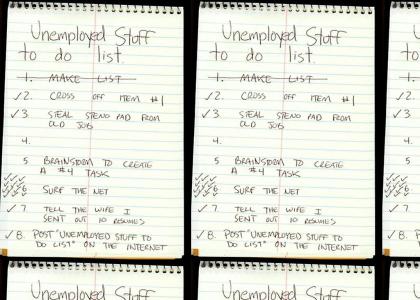 Unemployed Stuff
to do list
1. MAKE LIST
✓2. CROSS OFF ITEM #1
✓3 STEAL STENO PAD FROM
OLD JOB
4.
5 BRAINSTORM TO CREATE
A #4 TASK
6 SURF THE NET
✓7 TELL THE WIFE I
SENT OUT 10 RESUMES
✓8. POST "UNEMPLOYED STUFF TO
DO LIST" ON THE INTERNET
Unemployed Stuff
to do list
1. MAKE LIST
✓2. CROSS OFF ITEM #1
✓3 STEAL STENO PAD FROM
OLD JOB
4.
5 BRAINSTORM TO CREATE
A #4 TASK
6 SURF THE NET
✓7 TELL THE WIFE I
SENT OUT 10 RESUMES
✓8. POST "UNEMPLOYED STUFF TO
DO LIST" ON THE INTERNET
to
1.
✓2.
✓3
4.
5
6
✓7
✓8.
Unemployed Stuff
Unemployed Stuff